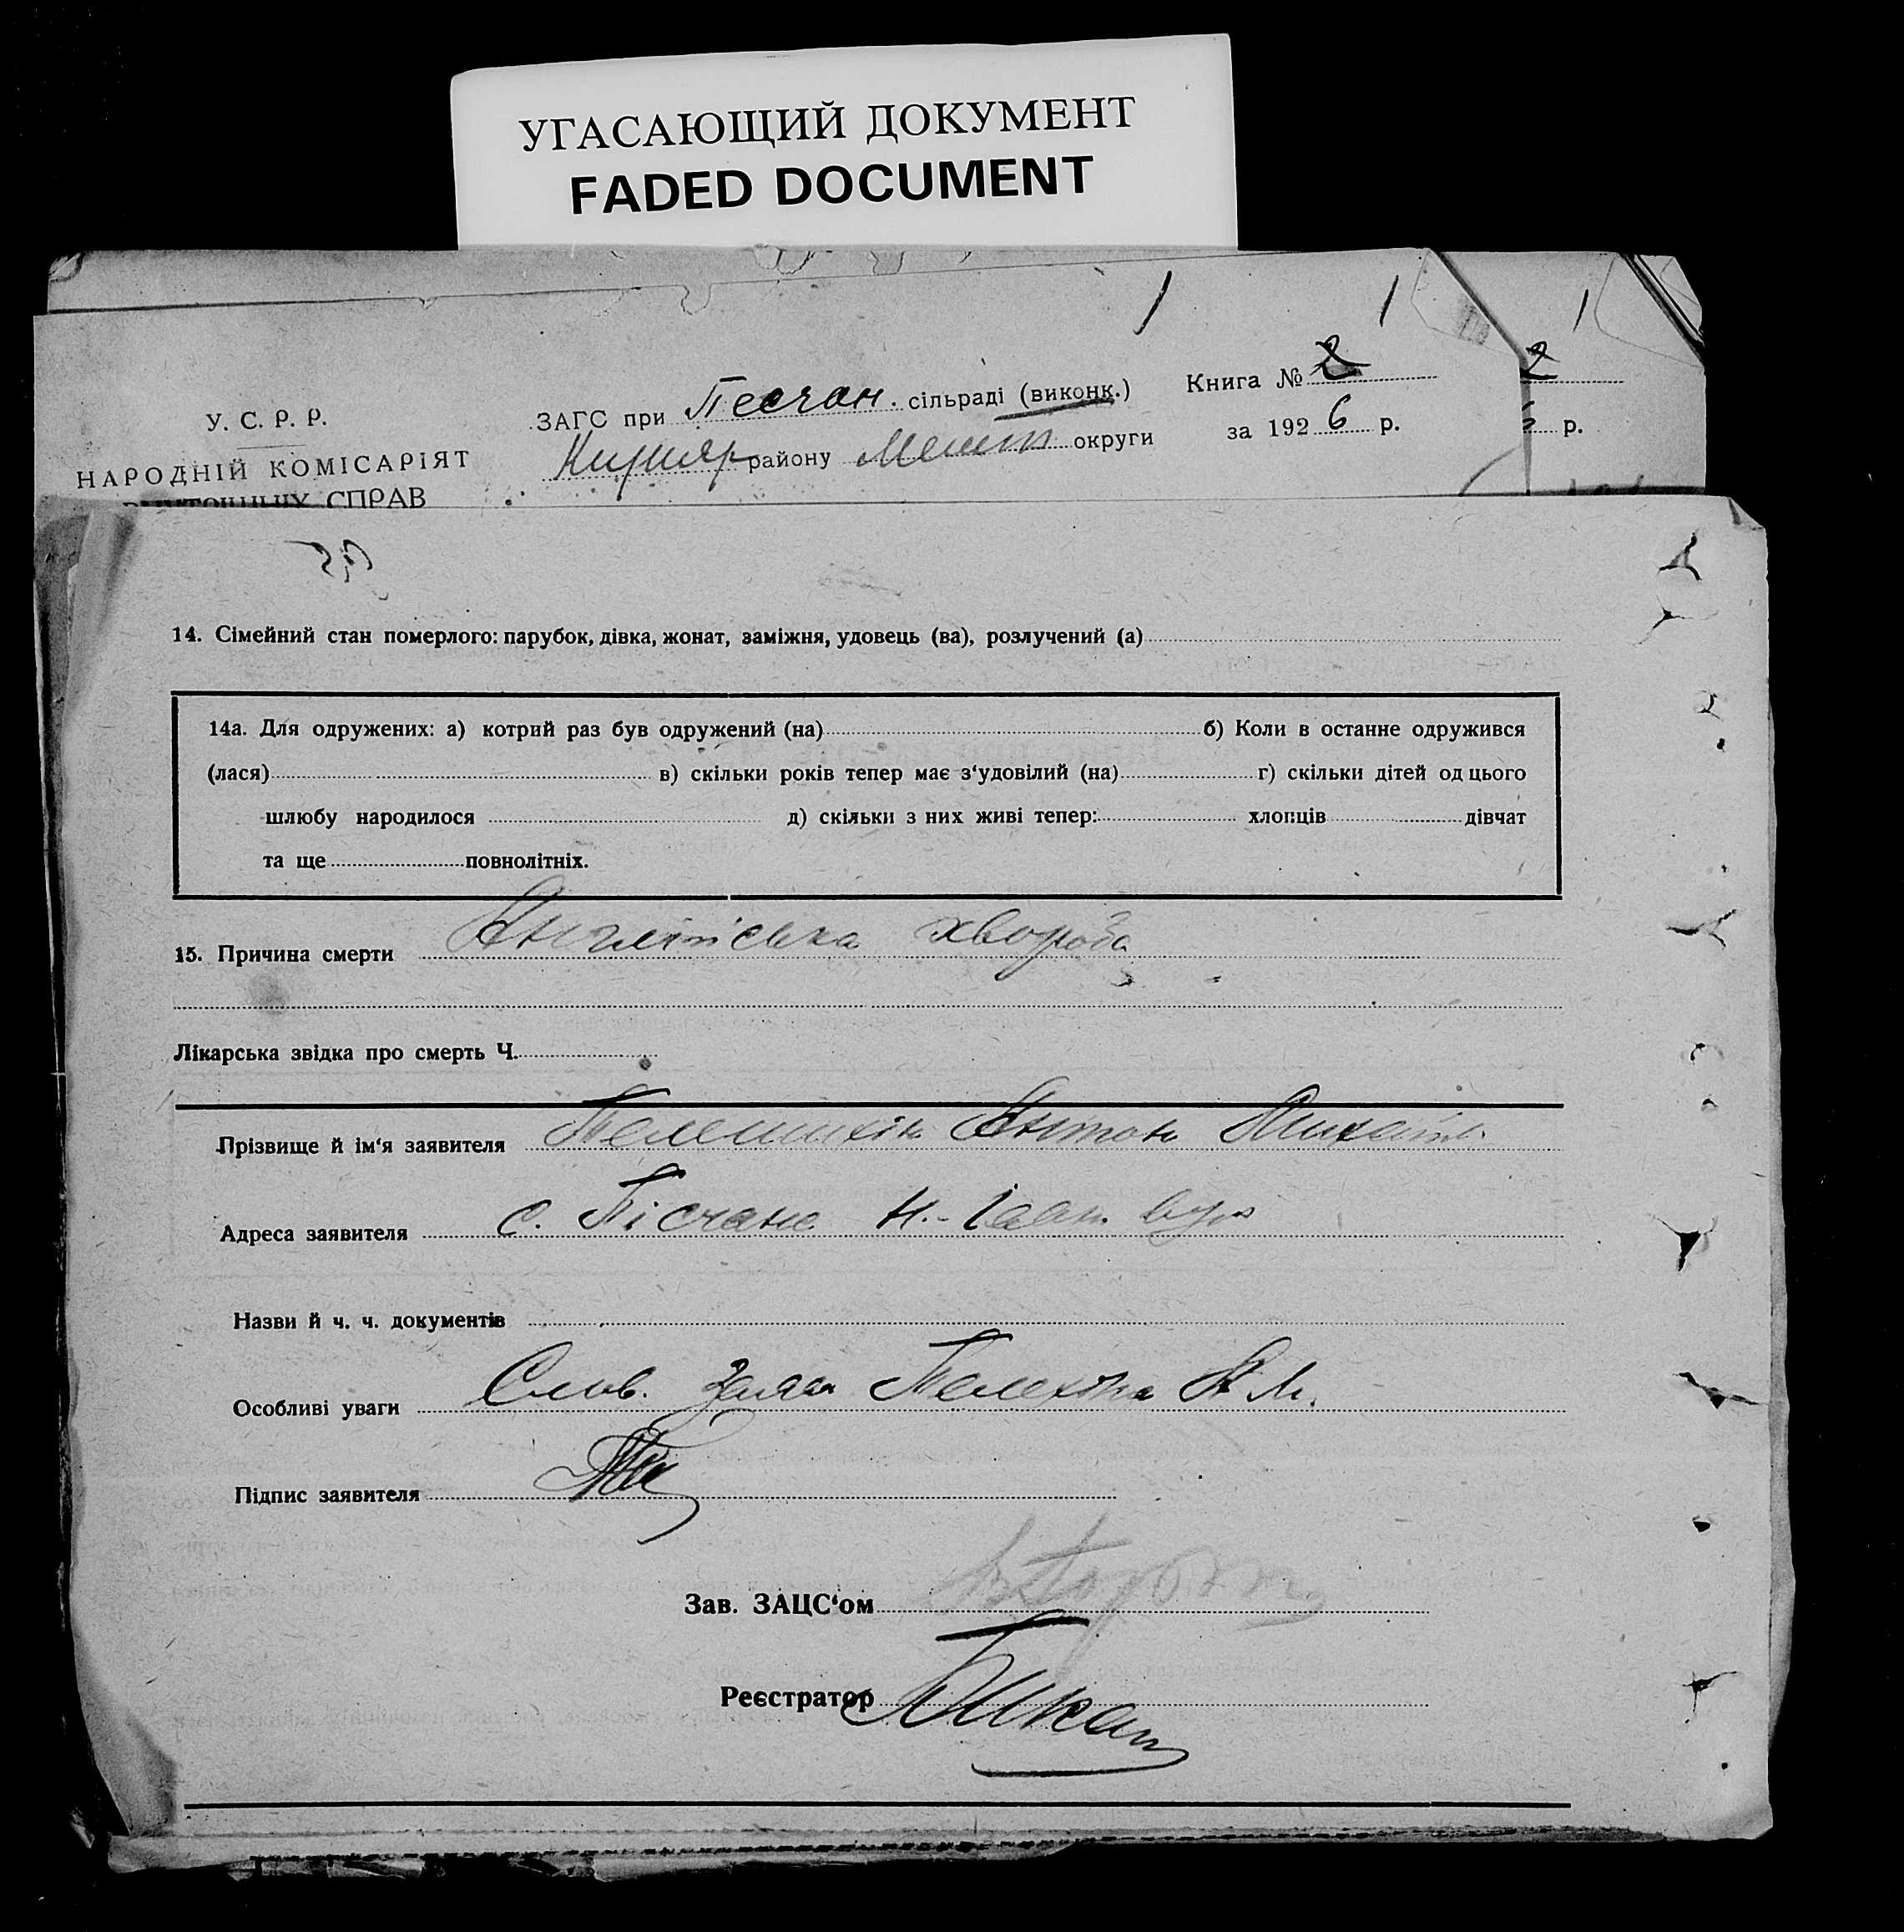 УГАСАЮЩИЙ ДОКУМЕНТ
FADED DOCUMENT
У. С. Р. Р.
НАРОДНІЙ КОМІСАРІЯТ
СПРАВ
ЗАГС при Песчан. сільраді (виконк.)
району Меліт округи
Книга № 2
за 1926 р.
2
р.
14. Сімейний стан померлого: парубок, дівка, жонат, заміжня, удовець (ва), розлучений (а)
14а. Для одружених: а) котрий раз був одружений (на) б) Коли в останне одружився
(лася) в) скільки років тепер має з‘удовілий (на) г) скільки дітей од цього
шлюбу народилося д) скільки з них живі тепер: хлопців дівчат
та ще повнолітніх.
15. Причина смерти Англійська хвороба
Лікарська звідка про смерть Ч.
Прізвище й ім‘я заявителя Антон Михайл.
Адреса заявителя с. Пісчане Н.-Іван. вул
Назви й ч. ч. документів
Особливі уваги Слов. заява А М.
Підпис заявителя
Зав. ЗАЦС‘ом
Реєстратор